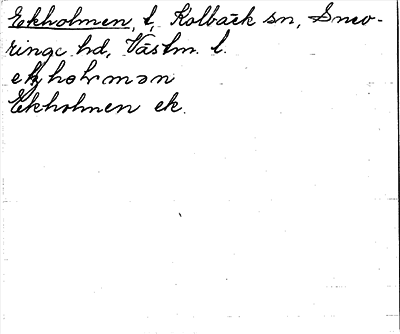 Ekholmen, l, Kolbäck sn, Snev-
ringe hd, Västm. l.
ekholmən
Ekholmen ek.